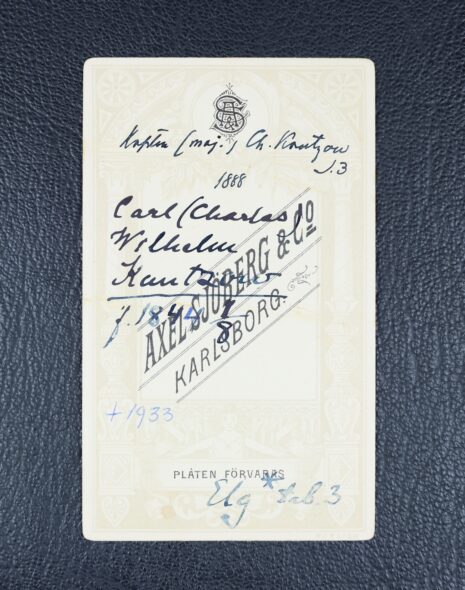 Kapten (maj.) Ch. Kantzow
J.3
1888
Carl (Charles)
Wilhelm
Kantzow
f. 1848 7/8
AXEL SJÖBERG & Co
KARLSBORG.
+ 1933
PLÅTEN FÖRVARAS
Elg * tab. 3